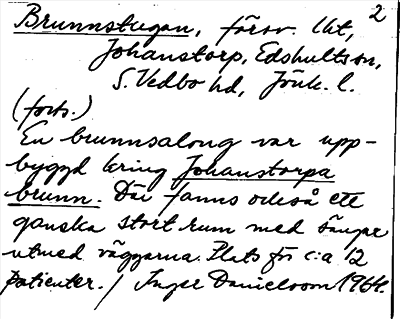 2
Brunnstugan, försv. lht,
Johanstorp, Edshults sn,
S. Vedbo hd, Jönk. l.
(forts.)
En brunnsalong var upp-
byggd kring Johanstorpa
brunn. Där fanns också ett
ganska stort rum med sängar
utmed väggarna. Plats för c:a 12
patienter. / Inger Danielsson 1964.